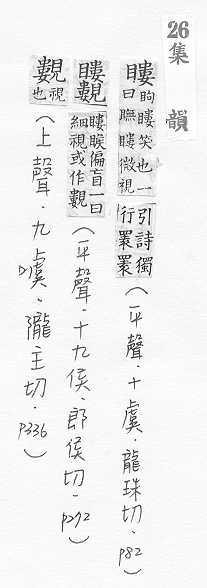 26
集韻
瞜 眗瞜笑也一
曰瞴瞜微視
引詩獨
行瞏瞏
(平聲.十虞.龍珠切.p82)
瞜䙓 瞜睺偏盲一曰
細視或作䙓
(平聲.十九侯.郎侯切.p272)
䙓 視
也
(上聲.九噳.隴主切.p336)